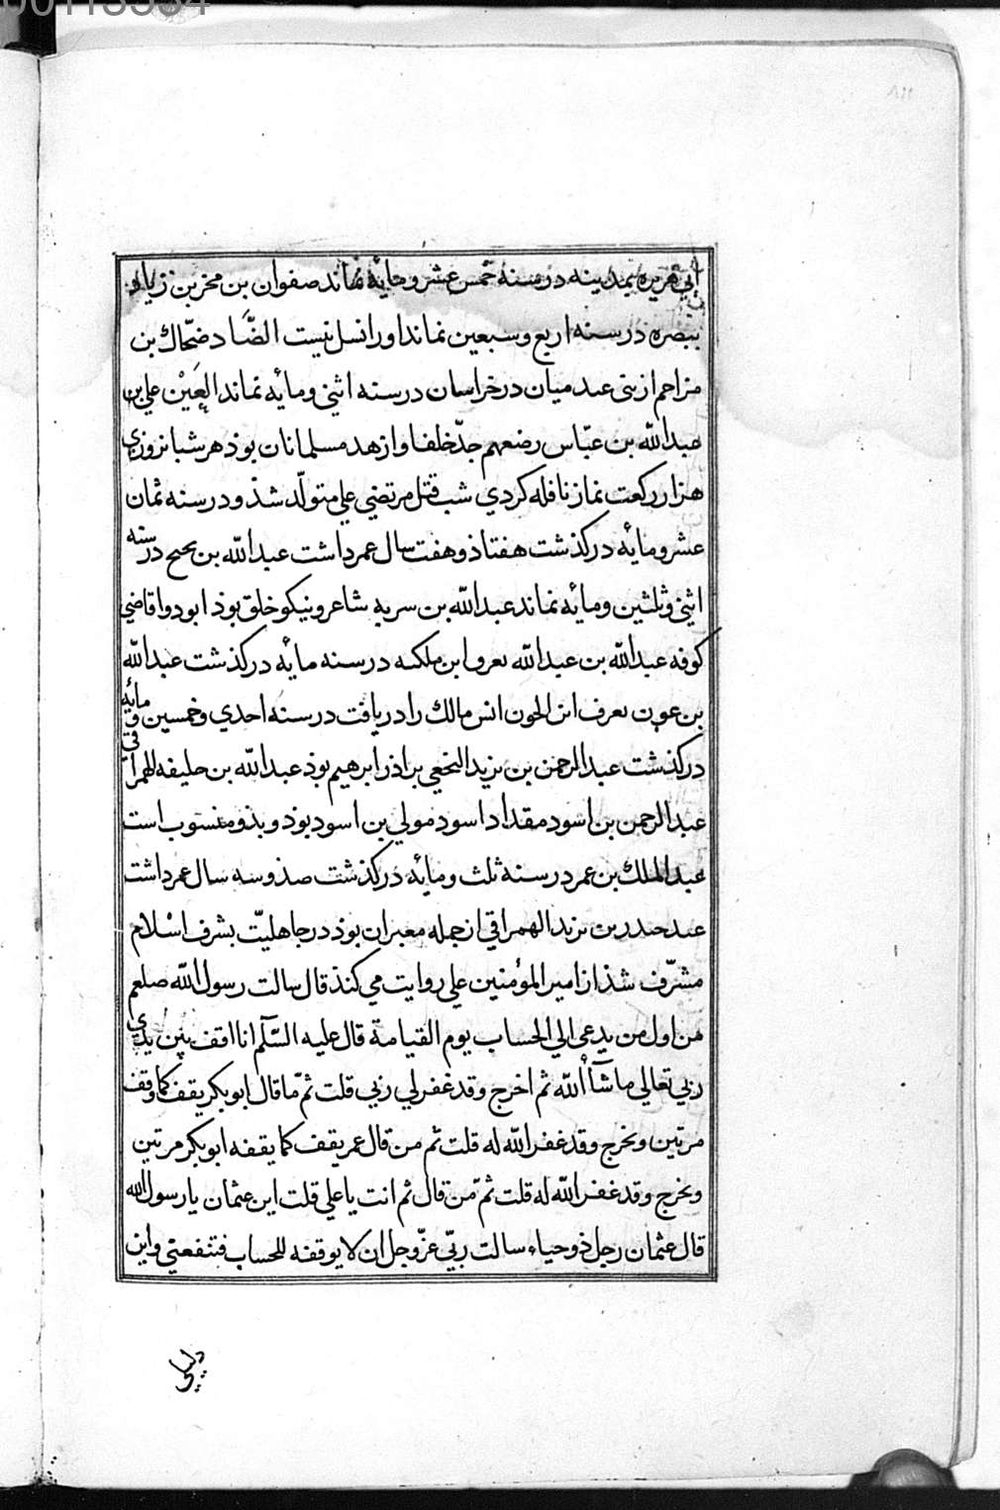 00113554
ابی هریره بمدینه در سنه خمس عشر و مایه نماند صفوان بن محرز بن زیاد
ببصره در سنه اربع و سبعین نماند او را نسل نیست الضّاد ضحّاك بن
مزاحم از بنی عبد میان در خراسان در سنه اثنی و مایه نماند العَیْن علی بن
عبدالله بن عبّاس رضعهم جدّ خلفا و ازهد مسلمانان بوذ هر شبانروزی
هزار رکعت نماز نافله کردی شب قتل مرتضی علی متولّد شذ و در سنه ثمان
عشر و مایه درکذشت هفتاذ و هفت سال عمر داشت عبدالله بن بحیح در سنه
اثنی و ثلثین و مایه نماند عبدالله بن سریه شاعر و نیکو خلق بوذ ابو دوا قاضی
کوفه عبدالله بن عبدالله یعرف ابن ملکیه در سنه مایه درکذشت عبدالله
بن عون یعرف ابن الحون انس مالك را دریافت در سنه احدی و خمسین و مایه
درکذشت عبدالرحمن بن یزید النخعی براذر ابرهیم بوذ عبدالله بن خلیفه الهمراقی
عبدالرحمن بن اسود مقداد اسود مولی بن اسود بوذ و بذو منسوب است
عبدالملك بن عمر در سنه ثلث و مایه درکذشت صذ و سه سال عمر داشت
عبد حیدر بن یزید الهمراقی از جمله معبران بوذ در جاهلیّت بشرف اسْلام
مشرّف شذ از امیرالمؤمنین علی روایت می کنذ قال سالت رسول الله صلعم
من اول من یدعی الی الحساب یوم القیامة قال علیه السّلم انا اقف بین یدی
ربی تعالی ما شآ الله ثم اخرج و قد غفر لی ربی قلت ثمّ ما قال ابو بکر یقف کما وقف
مرتین و یخرج و قد غفر الله له قلت ثم من قال عمر یقف کما یقفه ابو بکر مرتین
و یخرج و قد غفر الله له قلت ثمّ من قال ثم انت یا علی قلت این عثمان یا رسول الله
قال عثمان رجل ذو حیاء سالت ربّی عزّ و جل ان لا یوقفه للحساب فتفعنی و این
دلیلی